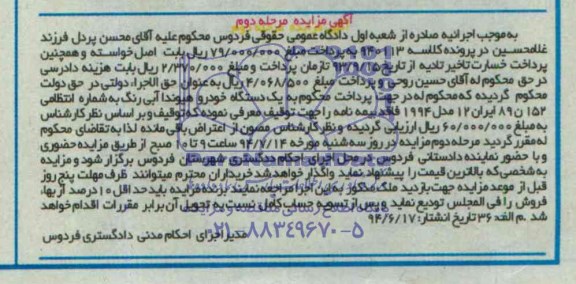 آگهی مزایده مرحله دوم
به موجب اجرائیه صادره از شعبه اول دادگاه عمومی حقوقی فردوس محکوم علیه آقای محسن پردل فرزند
غلامحسین در پرونده کلاسه ۹۴۰۱۱۳ به پرداخت مبلغ ۷۹/۰۰۰/۰۰۰ ریال بابت اصل خواسته و همچنین
پرداخت خسارت تاخیر تادیه از تاریخ ۹۳/۹/۱۵ تا زمان پرداخت و مبلغ ۲/۳۷۰/۰۰۰ ریال بابت هزینه دادرسی
در حق محکوم له آقای حسین روحی و پرداخت مبلغ ۴/۰۶۸/۰۰۰ ریال به عنوان حق الاجرا، دولتی در حق دولت
محکوم گردیده که محکوم له در جهت پرداخت محکوم به یک دستگاه خودرو هیوندا آبی رنگ به شماره انتظامی
۱۵۲ ن ۸۹ ایران ۱۲ مدل ۱۹۹۴ فاقد بیمه نامه را جهت توقیف معرفی نموده که توقیف و بر اساس نظر کارشناس
به مبلغ ۶۰/۰۰۰/۰۰۰ ریال ارزیابی گردیده و نظر کارشناس مصون از اعتراض باقی مانده لذا به تقاضای محکوم
له مقرر گردید مرحله دوم مزایده در روز سه شنبه مورخه ۹۴/۷/۱۴ ساعت ۹ تا ۱۰ صبح از طریق مزایده حضوری
و با حضور نماینده دادستانی فردوس در محل اجرای احکام دادگستری شهرستان فردوس برگزار شود و مزایده
به شخصی که بالاترین قیمت را پیشنهاد نماید واگذار خواهد شد خریداران محترم میتوانند ظرف مهلت پنج روز
قبل از موعد مزایده جهت بازدید ملک مذکور به این اجرا مراجعه نمایند برنده مزایده باید حداقل ۱۰ درصد از بهاء
فروش را فی المجلس تودیع نماید و پس از تسویه حساب کامل نسبت به تحویل آن برابر مقررات اقدام خواهد
شد .م الف: ۳۶ تاریخ انتشار: ۹۴/۶/۱۷
مدیر اجرای احکام مدنی دادگستری فردوس
۰۲۱-۸۸۳۴۹۶۷۰-۵